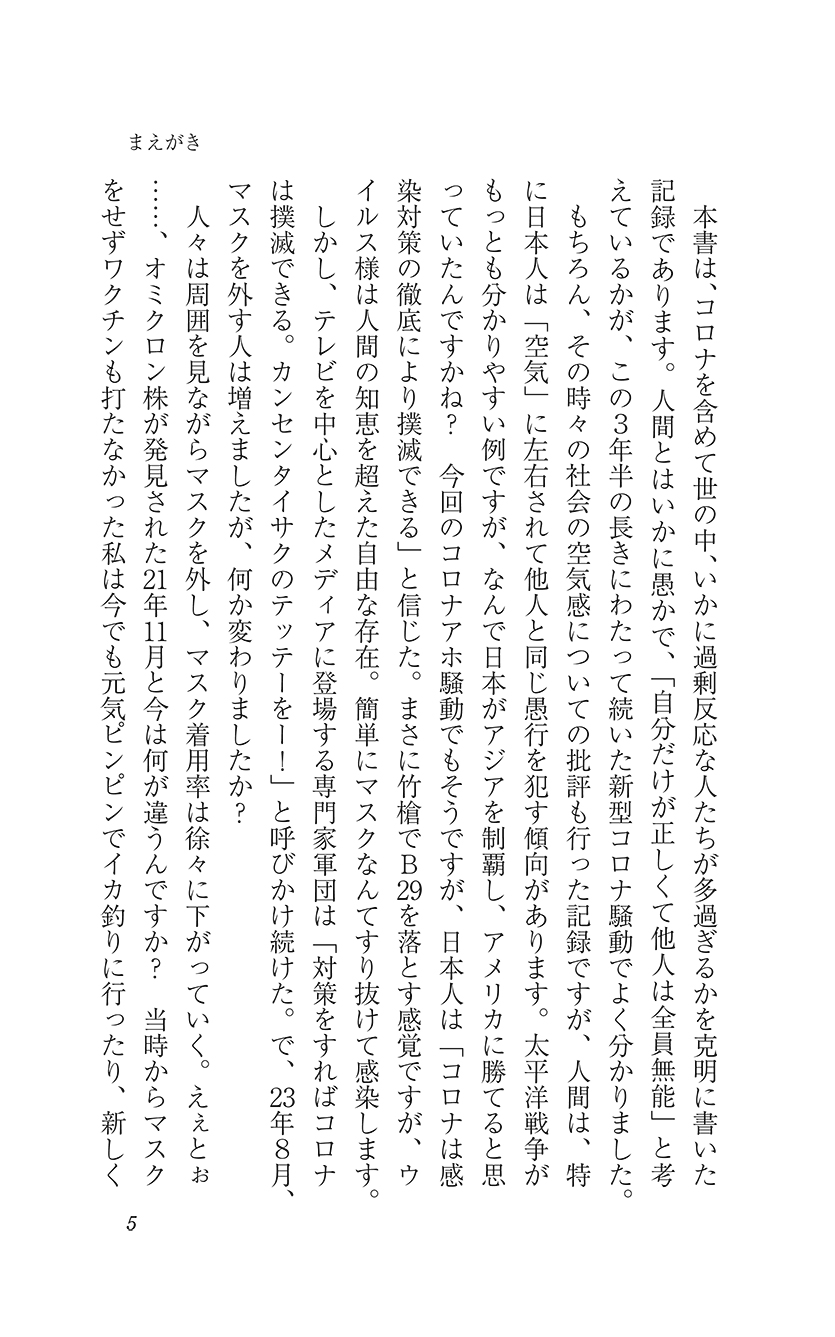 まえがき
　本書は、コロナを含めて世の中、いかに過剰反応な人たちが多過ぎるかを克明に書いた
記録であります。人間とはいかに愚かで、「自分だけが正しくて他人は全員無能」と考
えているかが、この3年半の長きにわたって続いた新型コロナ騒動でよく分かりました。
　もちろん、その時々の社会の空気感についての批評も行った記録ですが、人間は、特
に日本人は「空気」に左右されて他人と同じ愚行を犯す傾向があります。太平洋戦争が
もっとも分かりやすい例ですが、なんで日本がアジアを制覇し、アメリカに勝てると思
っていたんですかね？　今回のコロナアホ騒動でもそうですが、日本人は「コロナは感
染対策の徹底により撲滅できる」と信じた。まさに竹槍でB29を落とす感覚ですが、ウ
イルス様は人間の知恵を超えた自由な存在。簡単にマスクなんてすり抜けて感染します。
　しかし、テレビを中心としたメディアに登場する専門家軍団は「対策をすればコロナ
は撲滅できる。カンセンタイサクのテッテーをー！」と呼びかけ続けた。で、23年8月、
マスクを外す人は増えましたが、何か変わりましたか？
　人々は周囲を見ながらマスクを外し、マスク着用率は徐々に下がっていく。えぇとぉ
……、オミクロン株が発見された21年11月と今は何が違うんですか？　当時からマスク
をせずワクチンも打たなかった私は今でも元気ピンピンでイカ釣りに行ったり、新しく
5